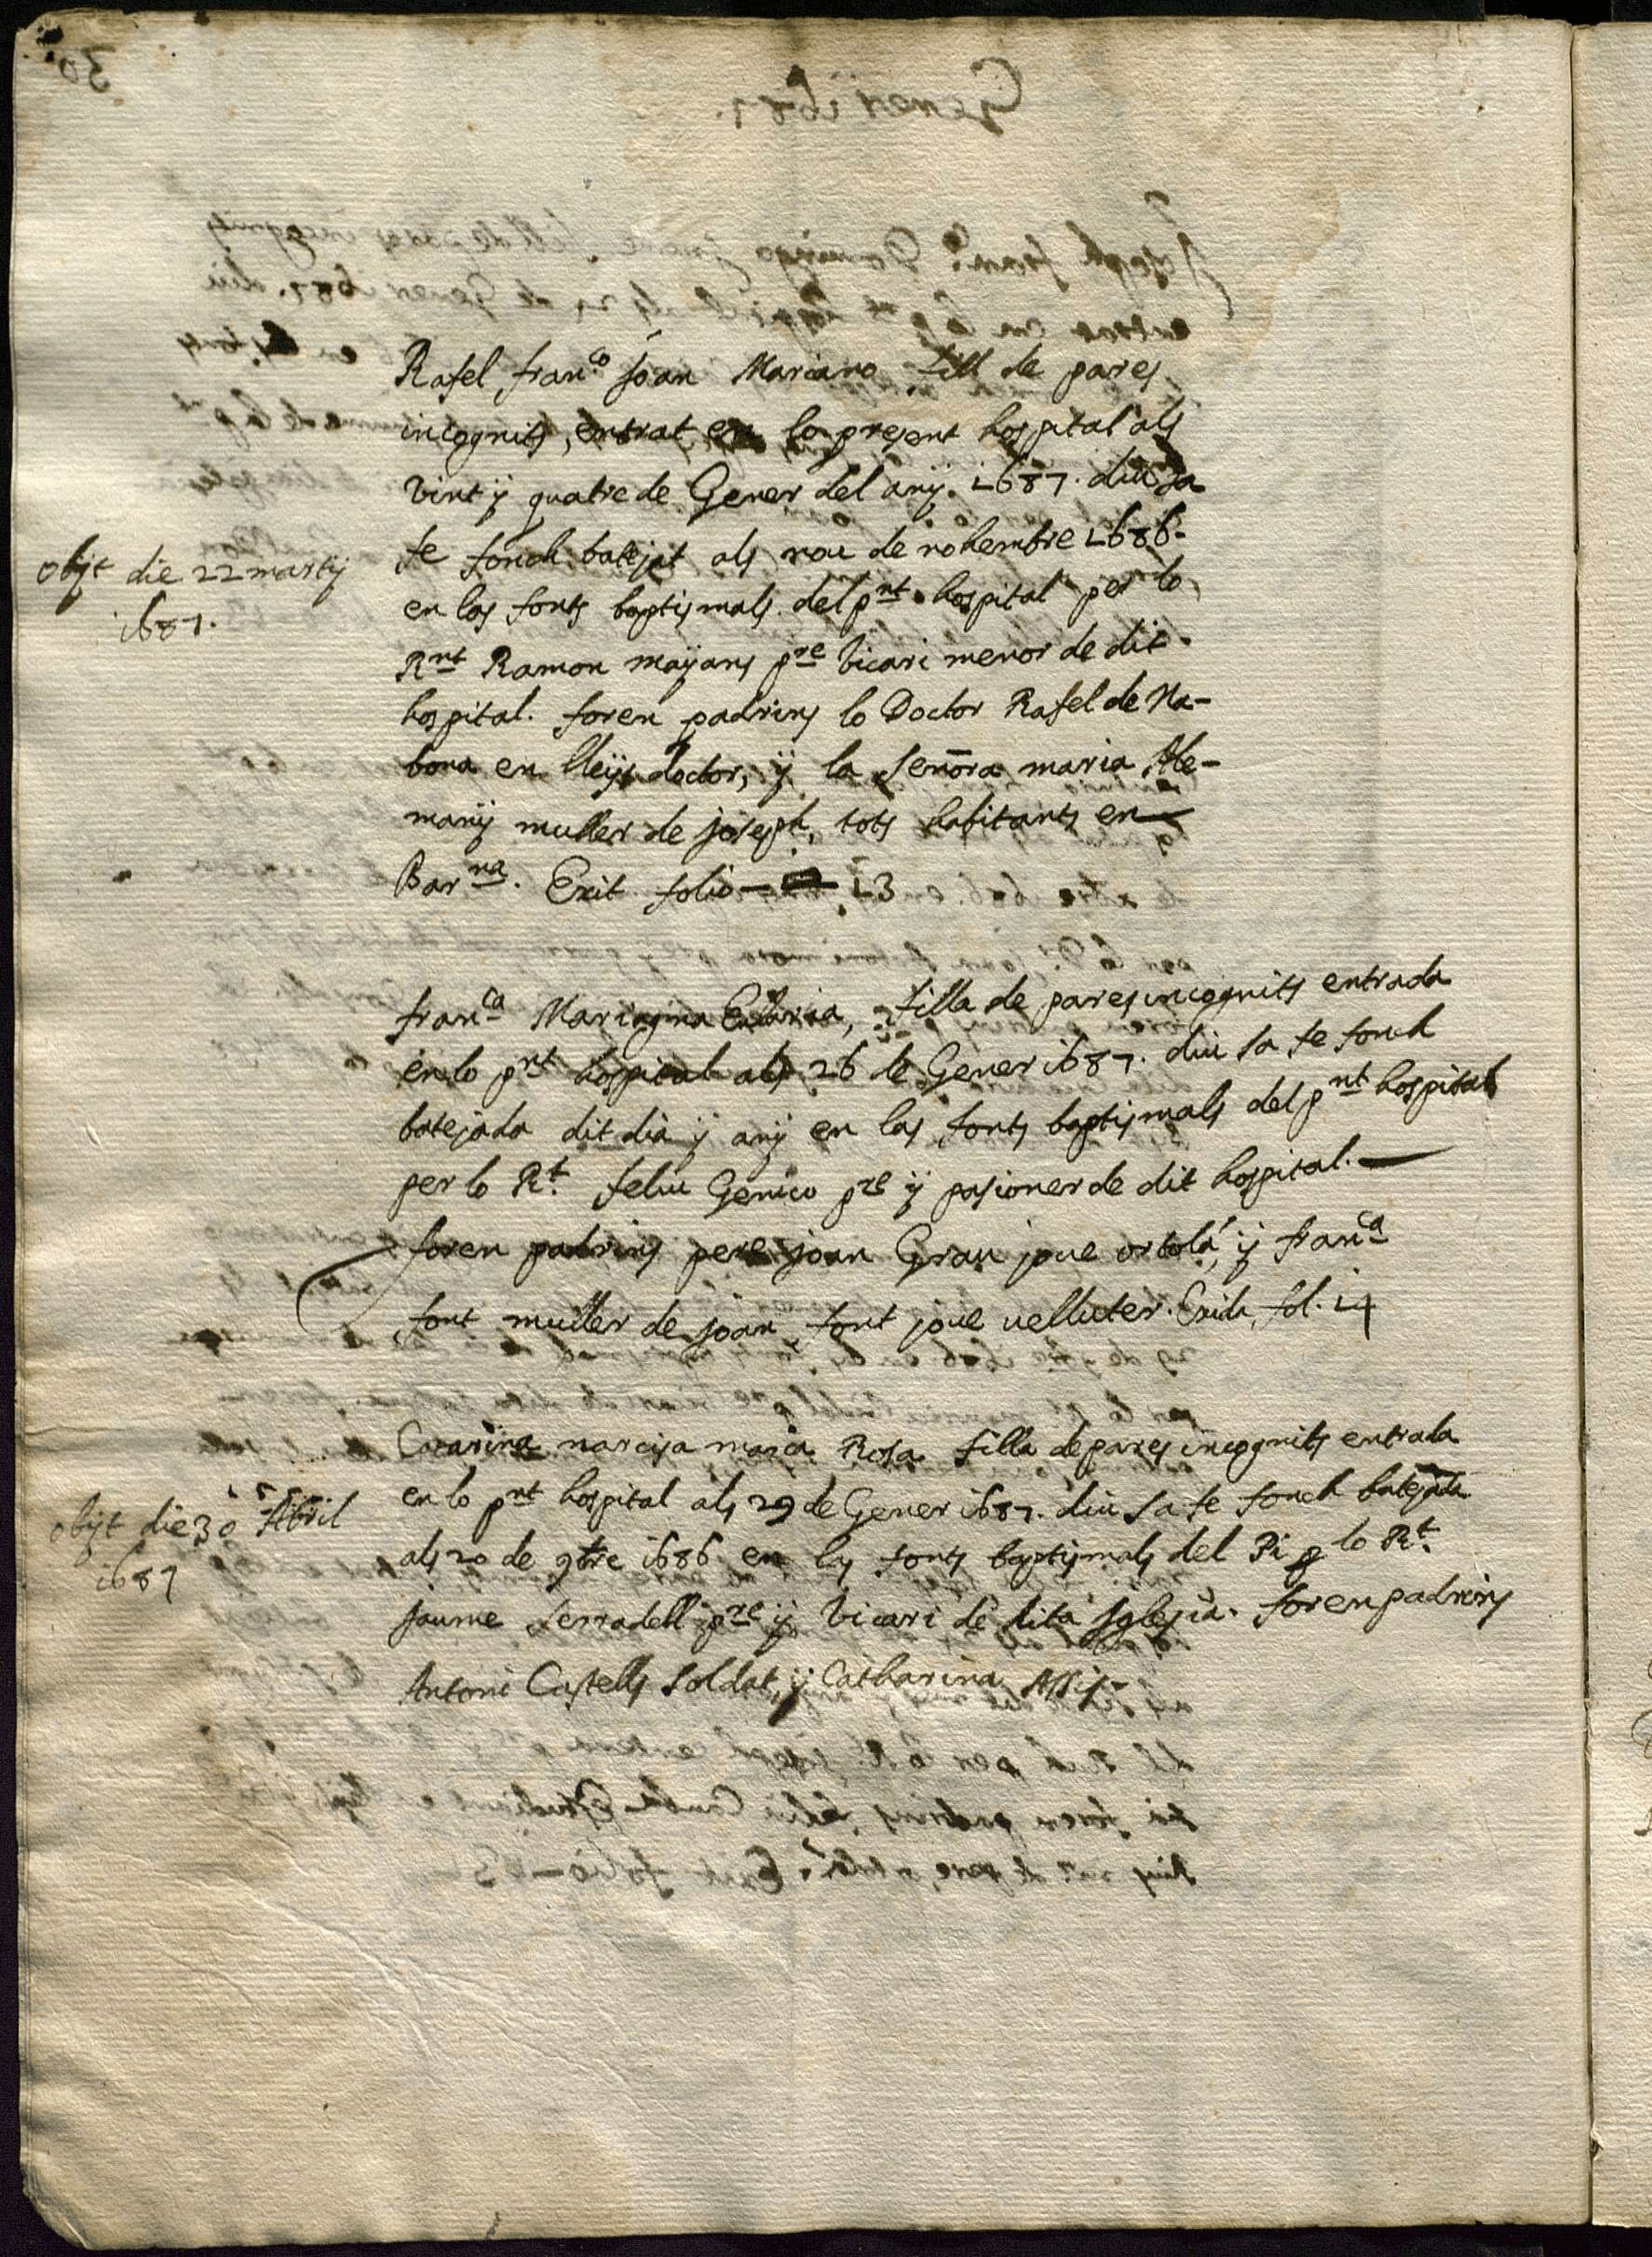 Rafel fran.co Joan Mariano fill de pares
incognits, entrat en lo present hospital als
vint y quatre de Gener del any. 1687. diu sa
fe fonch batejat als nou de nohembre 1686-
en las fonts baptismals del pnt hospital per lo
Rnt Ramon mayans pre vicari menor de dit
hospital. foren padrins lo Doctor Rafel de Na-
bona en lleys doctor, y la señora maria Ale-
many muller de joseph, tots habitants en
Barna. Exit folio — 13
obijt die 22 martij
1687.
franca Mariagna Eularia, filla de pares incognits entrada
en lo pnt hospital als 26 de Gener 1687. diu sa fe fonch
batejada dit dia y any en las fonts baptismals del pnt hospital
per lo Rt. feliu pre y pasioner de dit hospital.
foren padrins pere joan Grau jove ortolá, y franca
font muller de joan font jove velluter. Exida fol. 14
Catarina narcisa maria Rosa filla de pares incognits entrada
en lo pnt hospital als 29 de Gener 1687. diu sa fe fonch batejada
als 20 de 9bre 1686 en las fonts baptismals del Pi p lo Rt.
jaume Serradell pre y vicari de dita Iglesia. foren padrins
Antoni Castells soldat, y Catharina
obijt die 30 Abril
1687